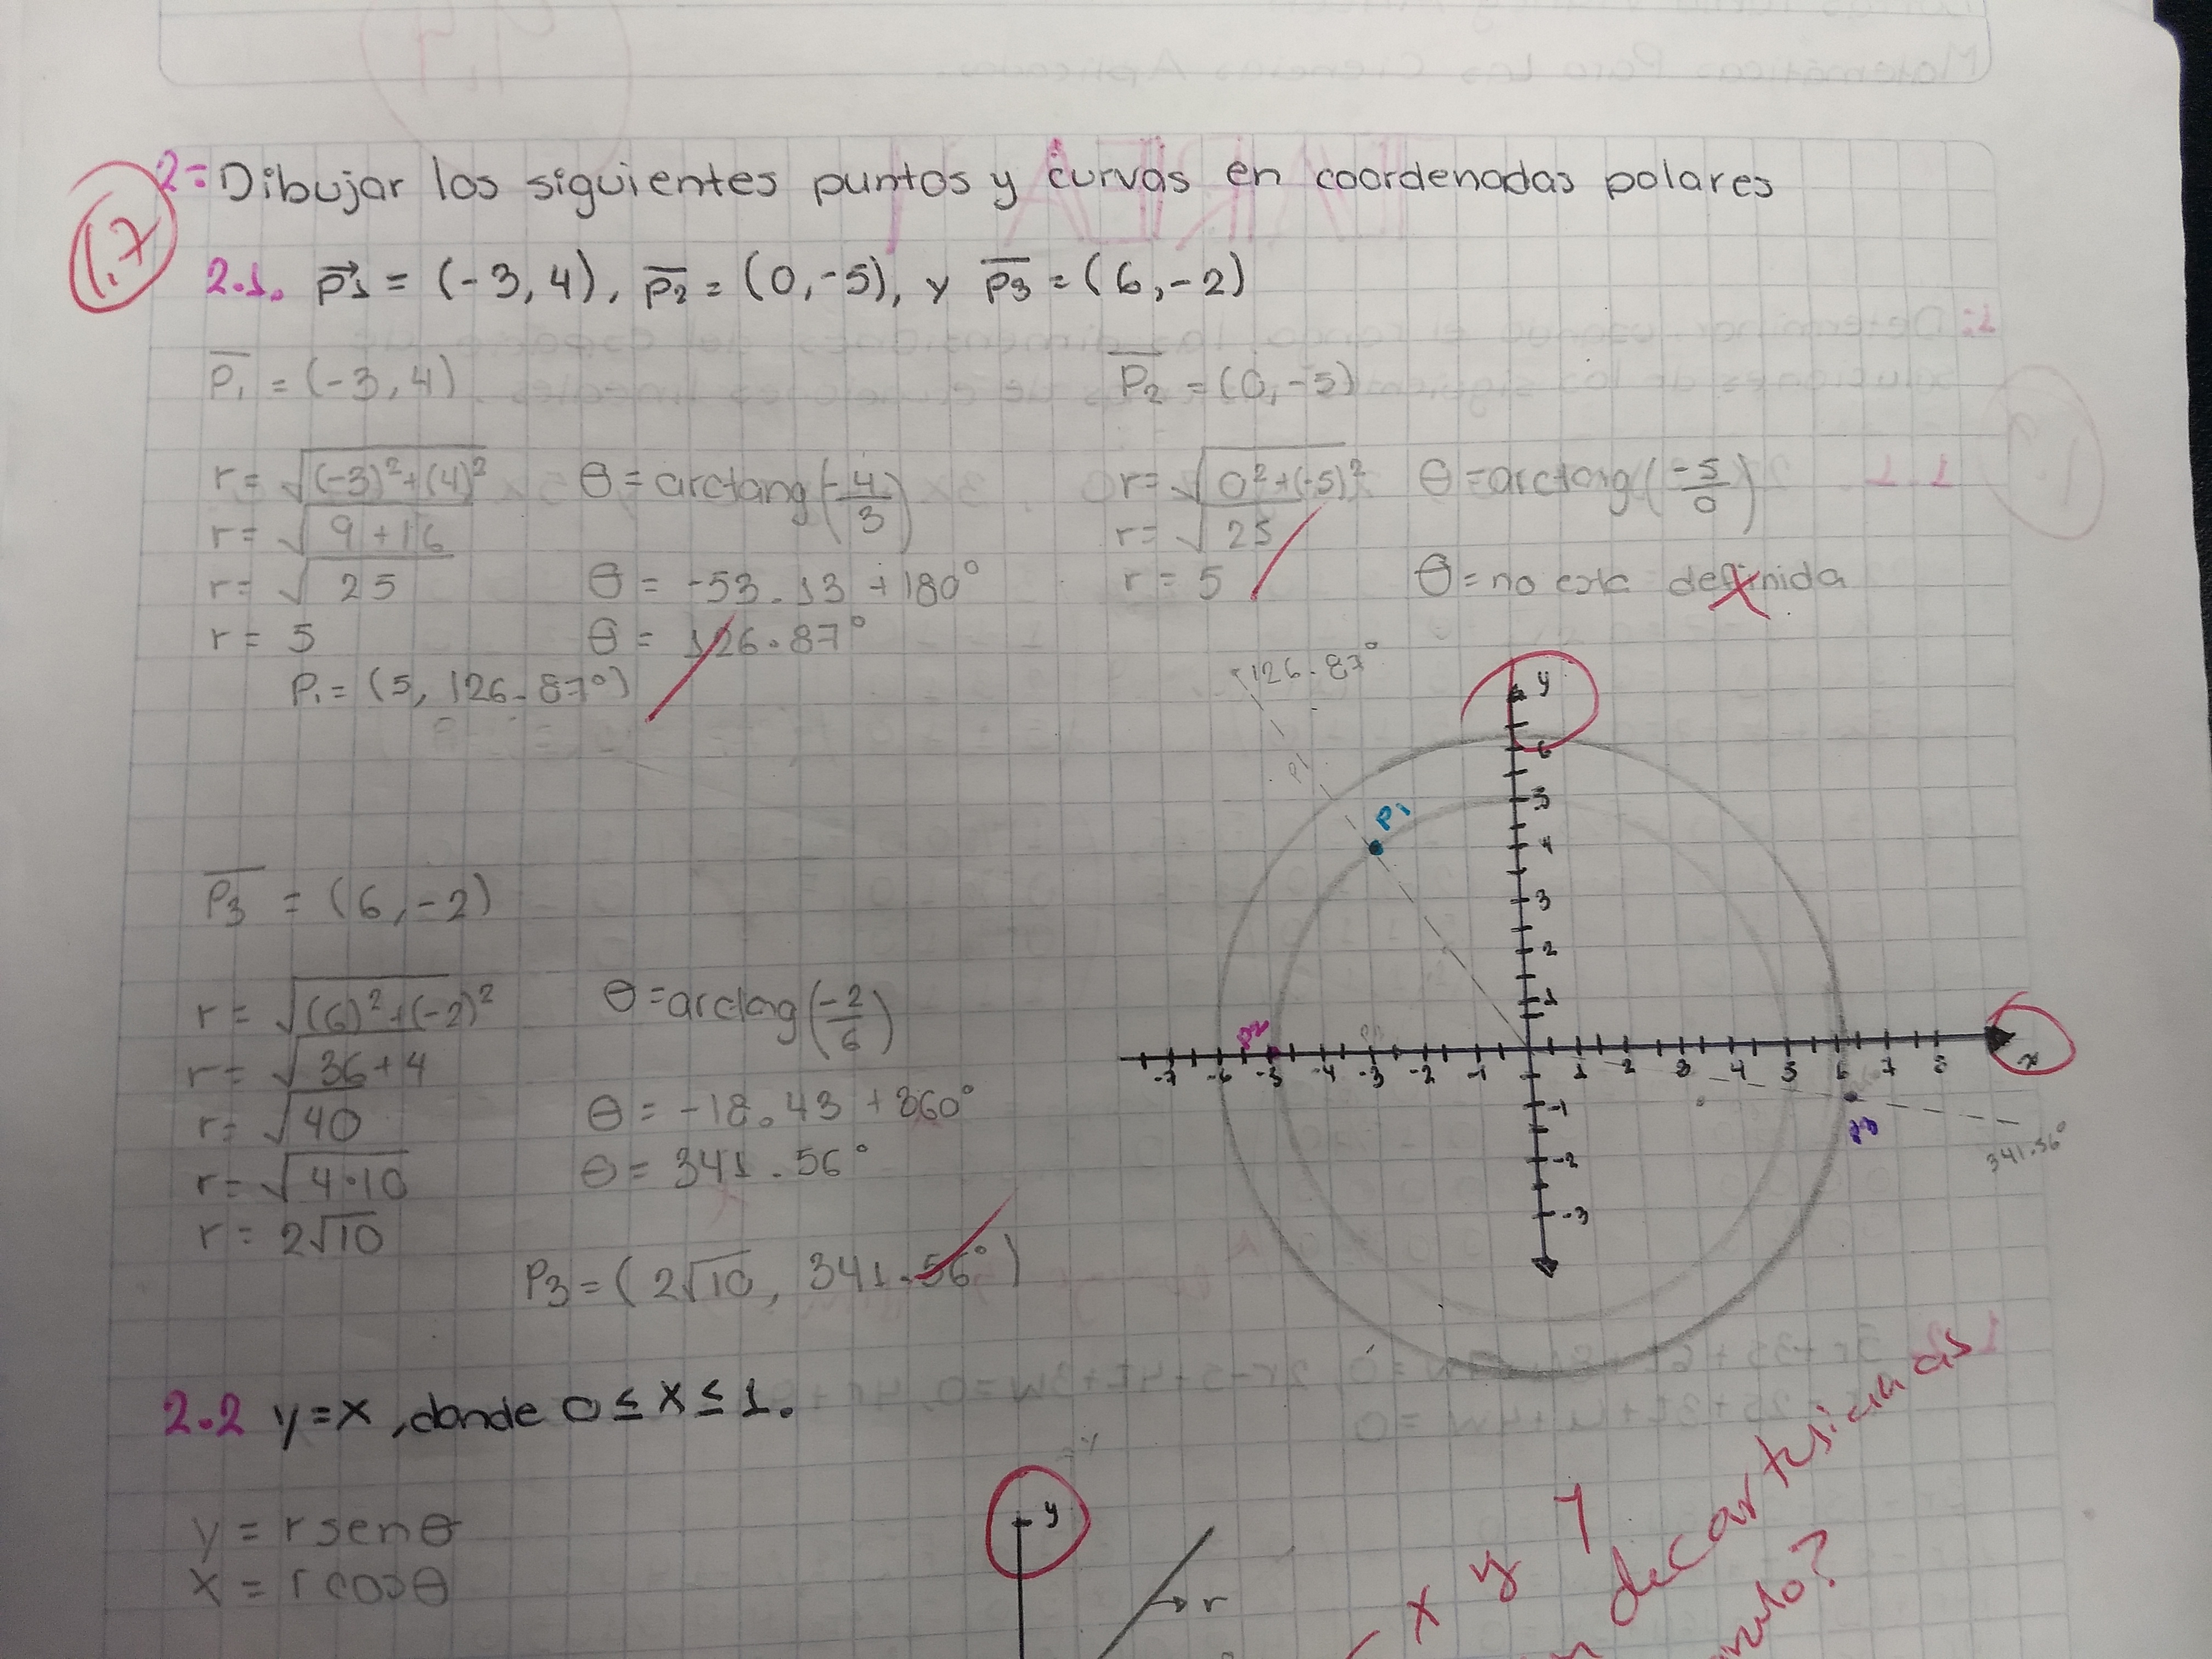 1.7
2= Dibujar los siguientes puntos y curvas en coordenadas polares
2.1. P1 = (-3, 4), P2 = (0, -5), y P3 = (6, -2)
P1 = (-3, 4)
r = √(-3)²+(4)²
r = √9+16
r = √25
r = 5
θ = arctang(-4/3)
θ = -53.13 + 180°
θ = 126.87°
P1 = (5, 126.87°)
P2 = (0, -5)
r = √0²+(-5)²
r = √25
r = 5
θ = arctang(-5/0)
θ = no esta definida
P3 = (6, -2)
r = √(6)²+(-2)²
r = √36+4
r = √40
r = √4·10
r = 2√10
θ = arctang(-2/6)
θ = -18.43 + 360°
θ = 341.56°
P3 = (2√10, 341.56°)
126.87°
y
P1
P1
6
5
4
3
2
1
P2
-7 -6 -5 -4 -3 -2 -1 1 2 3 4 5 6 7 8
x
-1
-2
-3
P3
341.56°
2.2 y = x, donde 0 ≤ x ≤ 1.
y = r senθ
x = r cosθ
y
r
x y y
decartesianas